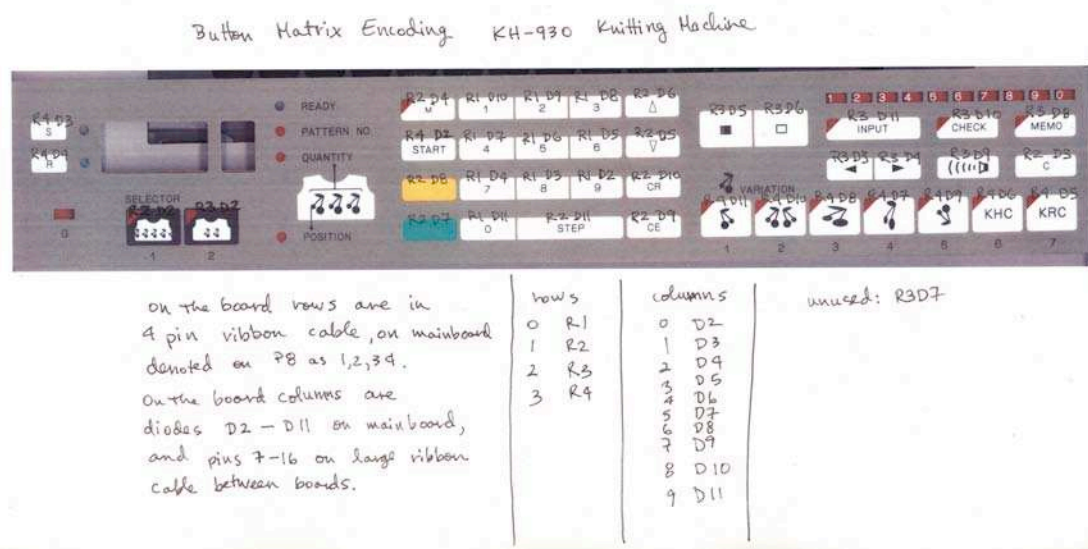 Button Matrix Encoding KH-930 Knitting Machine
R4 D3
S
R4 D4
R
G
SELECTOR
R2 D2
1
R3 D2
2
READY
PATTERN NO.
QUANTITY
POSITION
R2 D4 R1 D10 R1 D9 R1 D8 R2 D6
M 1 2 3 △
R4 D2 R1 D7 R1 D6 R1 D5 R2 D5
START 4 5 6 ▽
R2 D8 R1 D4 R1 D3 R1 D2 R2 D10
7 8 9 CR
R2 D7 R1 D11 R2 D11 R2 D9
0 STEP CE
R3D5 R3D6
■ □
1 2 3 4 5 6 7 8 9 0
R3 D11 R3 D10 R3 D8
INPUT CHECK MEMO
R3D3 R3 D4 R3 D9 R2 D3
◀ ▶ C
VARIATION
R4D11 R4 D10 R4 D8 R4 D7 R4 D9 R4 D6 R4 D5
KHC KRC
1 2 3 4 5 6 7
on the board rows are in
4 pin ribbon cable, on mainboard
denoted on P8 as 1,2,3 4.
On the board columns are
diodes D2 – D11 on mainboard,
and pins 7-16 on large ribbon
cable between boards.
rows
0 R1
1 R2
2 R3
3 R4
columns
0 D2
1 D3
2 D4
3 D5
4 D6
5 D7
6 D8
7 D9
8 D10
9 D11
unused: R3D7